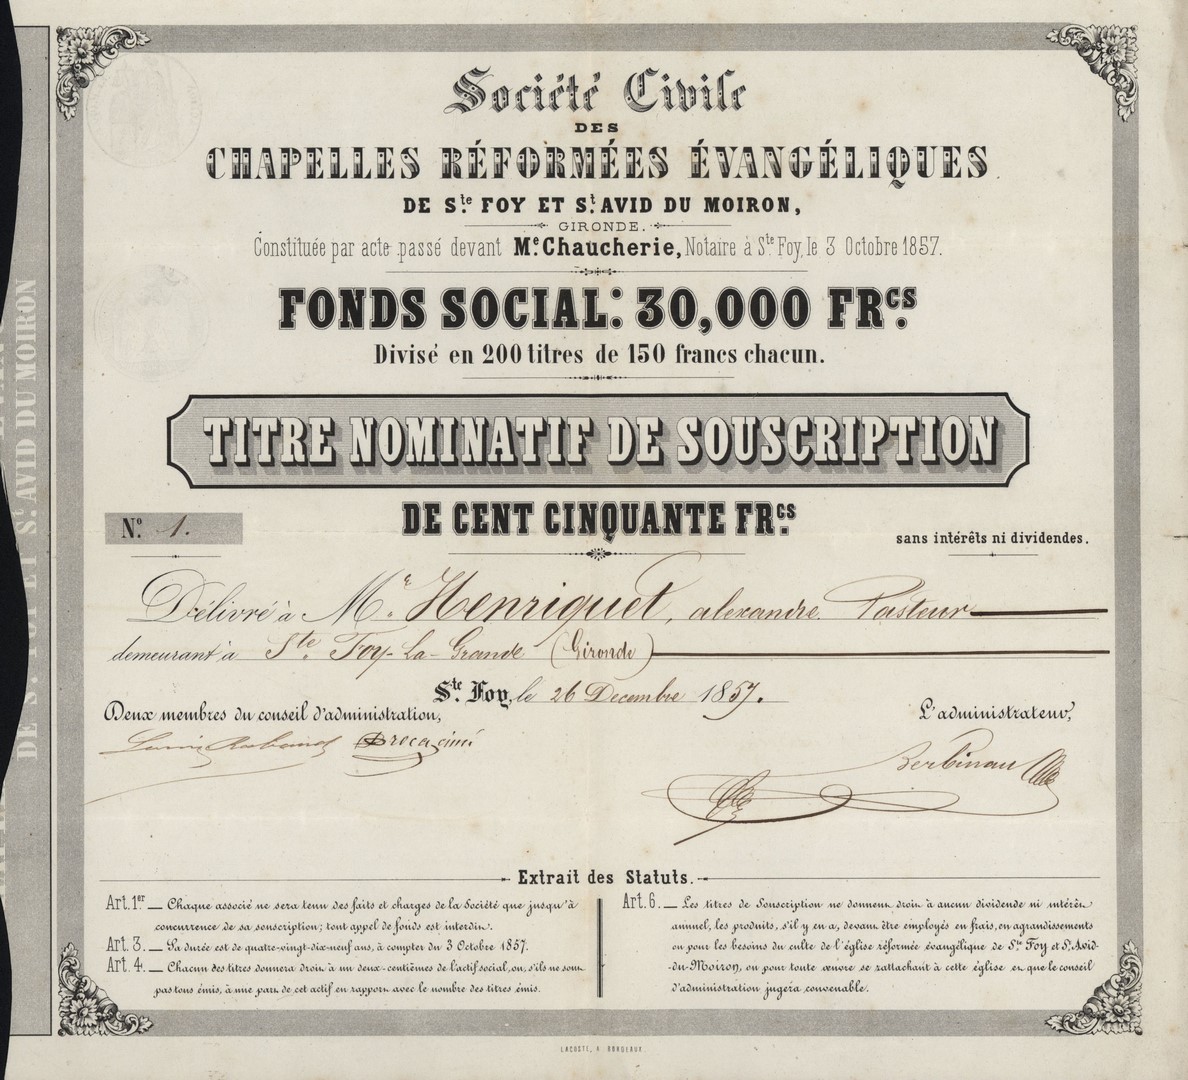 Société Civile
DES
CHAPELLES RÉFORMÉES ÉVANGÉLIQUES
DE Ste. FOY ET St. AVID DU MOIRON,
GIRONDE.
Constituée par acte passé devant Me. Chaucherie, Notaire à Ste Foy, le 3 Octobre 1857.
FONDS SOCIAL: 30,000 FRcs.
Divisé en 200 titres de 150 francs chacun.
TITRE NOMINATIF DE SOUSCRIPTION
DE CENT CINQUANTE FRcs.
No. 1.
sans intérêts ni dividendes.
Délivré à Mr. Henriquet, alexandre. Pasteur
demeurant à Ste. Foy-La-Grande (Gironde)
Ste. Foy, le 26 Decembre 1857.
Deux membres du conseil d'administration,
L'administrateur,
Extrait des Statuts.
Art. 1er — Chaque associé ne sera tenu des faits et charges de la Société que jusqu'à
concurrence de sa souscription; tout appel de fonds est interdit.
Art. 3. — Sa durée est de quatre-vingt-dix-neuf ans, à compter du 3 Octobre 1857.
Art. 4. — Chacun des titres donnera droit à un deux-centièmes de l'actif social, ou, s'ils ne sont
pas tous émis, à une part de cet actif en rapport avec le nombre des titres émis.
Art. 6. — Les titres de Souscription ne donnent droit à aucun dividende ni intérêt
annuel, les produits, s'il y en a, devant être employés en frais, en agrandissements
ou pour les besoins du culte de l'église réformée évangélique de Ste Foy et St. Avid-
du-Moiron, ou pour toute œuvre se rattachant à cette église et que le conseil
d'administration jugera convenable.
LACOSTE, A BORDEAUX.
DE S. FOY ET St AVID DU MOIRON